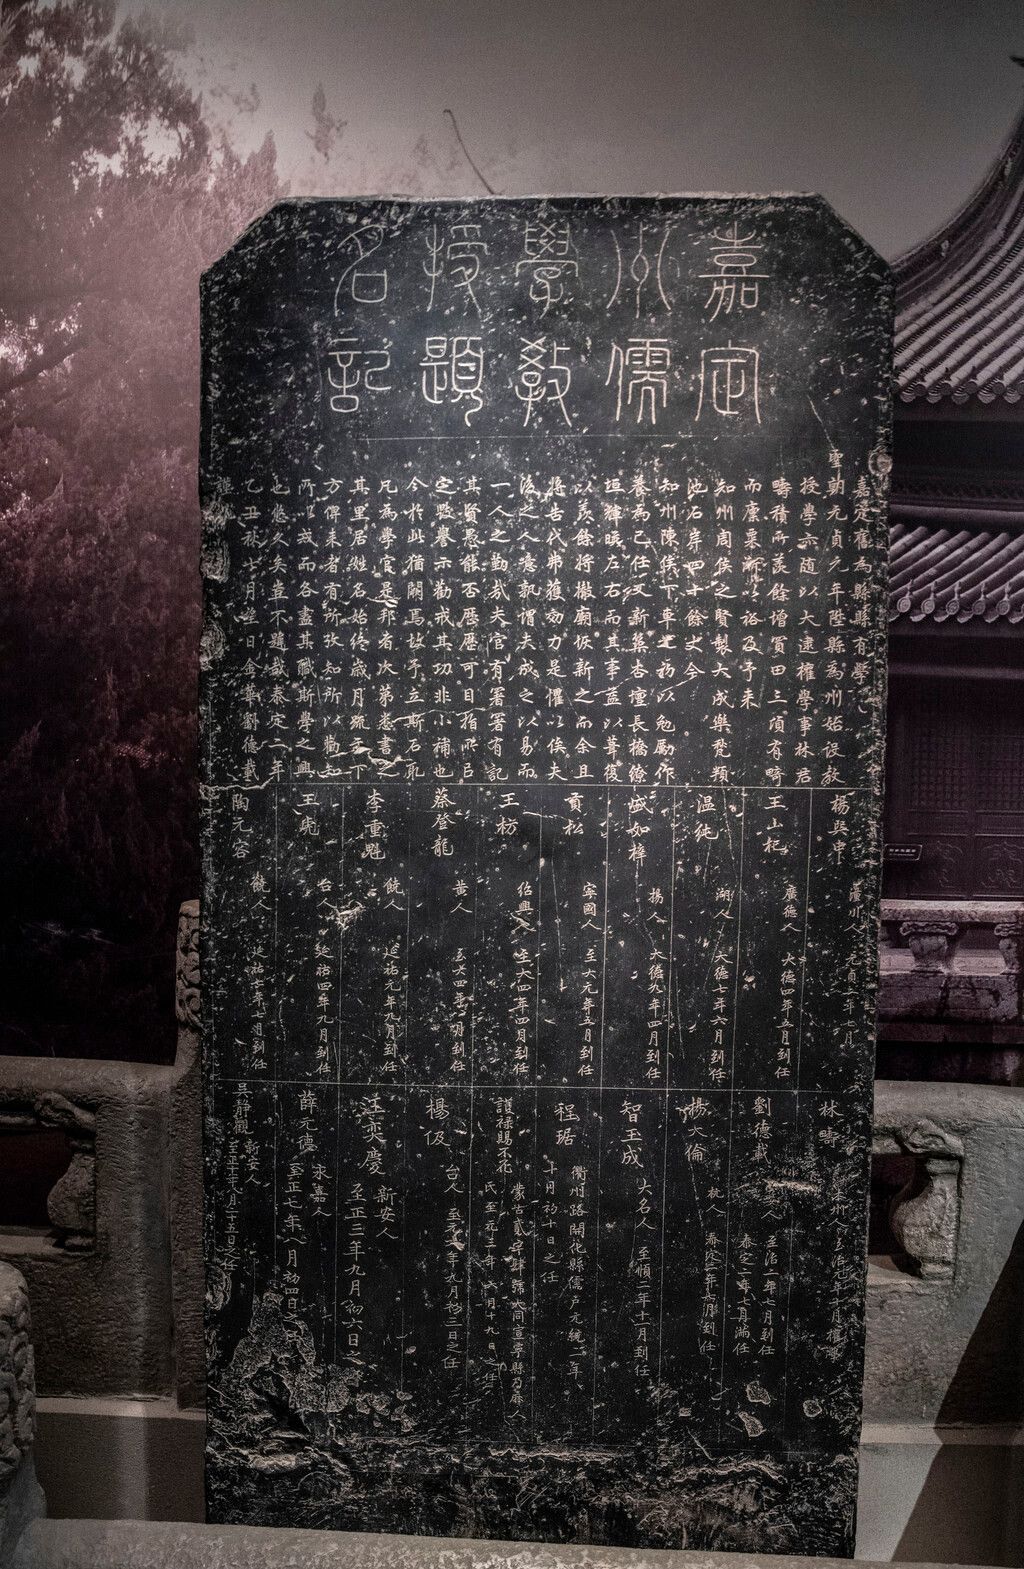 嘉定
州儒
學教
授題
名記
嘉定舊為縣縣有學
聖朝元貞元年陞縣為州始設教
授學六隨以大逮權學事林君
疇積所羨餘增買田三頃有畸
而廩粟漸以裕及予來
知州周侯之賢製大成樂甃頖
池石岸四十餘丈今
知州陳侯下車之初以勉勵作
養為己任又新築杏壇長橋繚
垣肆暎左右而其事益以葺復
以羨餘將撤廟恢新之而余且
將告代弗獲効力是懼以俟夫
後之人意孰謂夫成之以易而
一人之勤哉夫官有署署有記
其賢愚能否歷歷可目指所㠯
定毀譽示勸戒其功非小補也
今於此猶闕焉故予立斯石凡
凡為學官是邦者次第悉書之
其里居姓名始終歲月疏于下
方俾来者有所攷知所以勸知
所以戒而各盡其職斯學之興
也悠久矣豈不韙哉泰定二年
乙丑秋七月 日金華劉德載
謹記
楊與申 廣州人 元貞二年七月
王山杞 廣德人 大德四年五月到任
温純 湖人 大德七年六月到任
盛如梓 揚人 大德九年四月到任
貢松 寧國人 至大元年五月到任
王枋 紹興人 至大四年四月到任
蔡登龍 黃人 至大四年 月到任
李重魁 饒人 延祐元年九月到任
王虎 台人 延祐四年九月到任
陶元容 饒人 延祐七年 到任
林疇 州人 至治元年十月權
劉德載 人 至治二年七月到任 泰定二年七月滿任
楊大倫 杭人 泰定二年 月到任
智玉成 大名人 至順二年十一月到任
程琚 衢州路開化縣儒户元統二年 十月初十日之任
護祿賜不花 蒙古貳 肆號大同宣寧縣乃麻 人 氏 至元三年六月十九日之任
楊伋 台人 至元 年九月初三日之任
汪奕慶 新安人 至正三年九月初六日之
薛元德 永嘉人 至正七年八月初四日之
吳靜觀 新安人 至正十 年 月二十五日之任